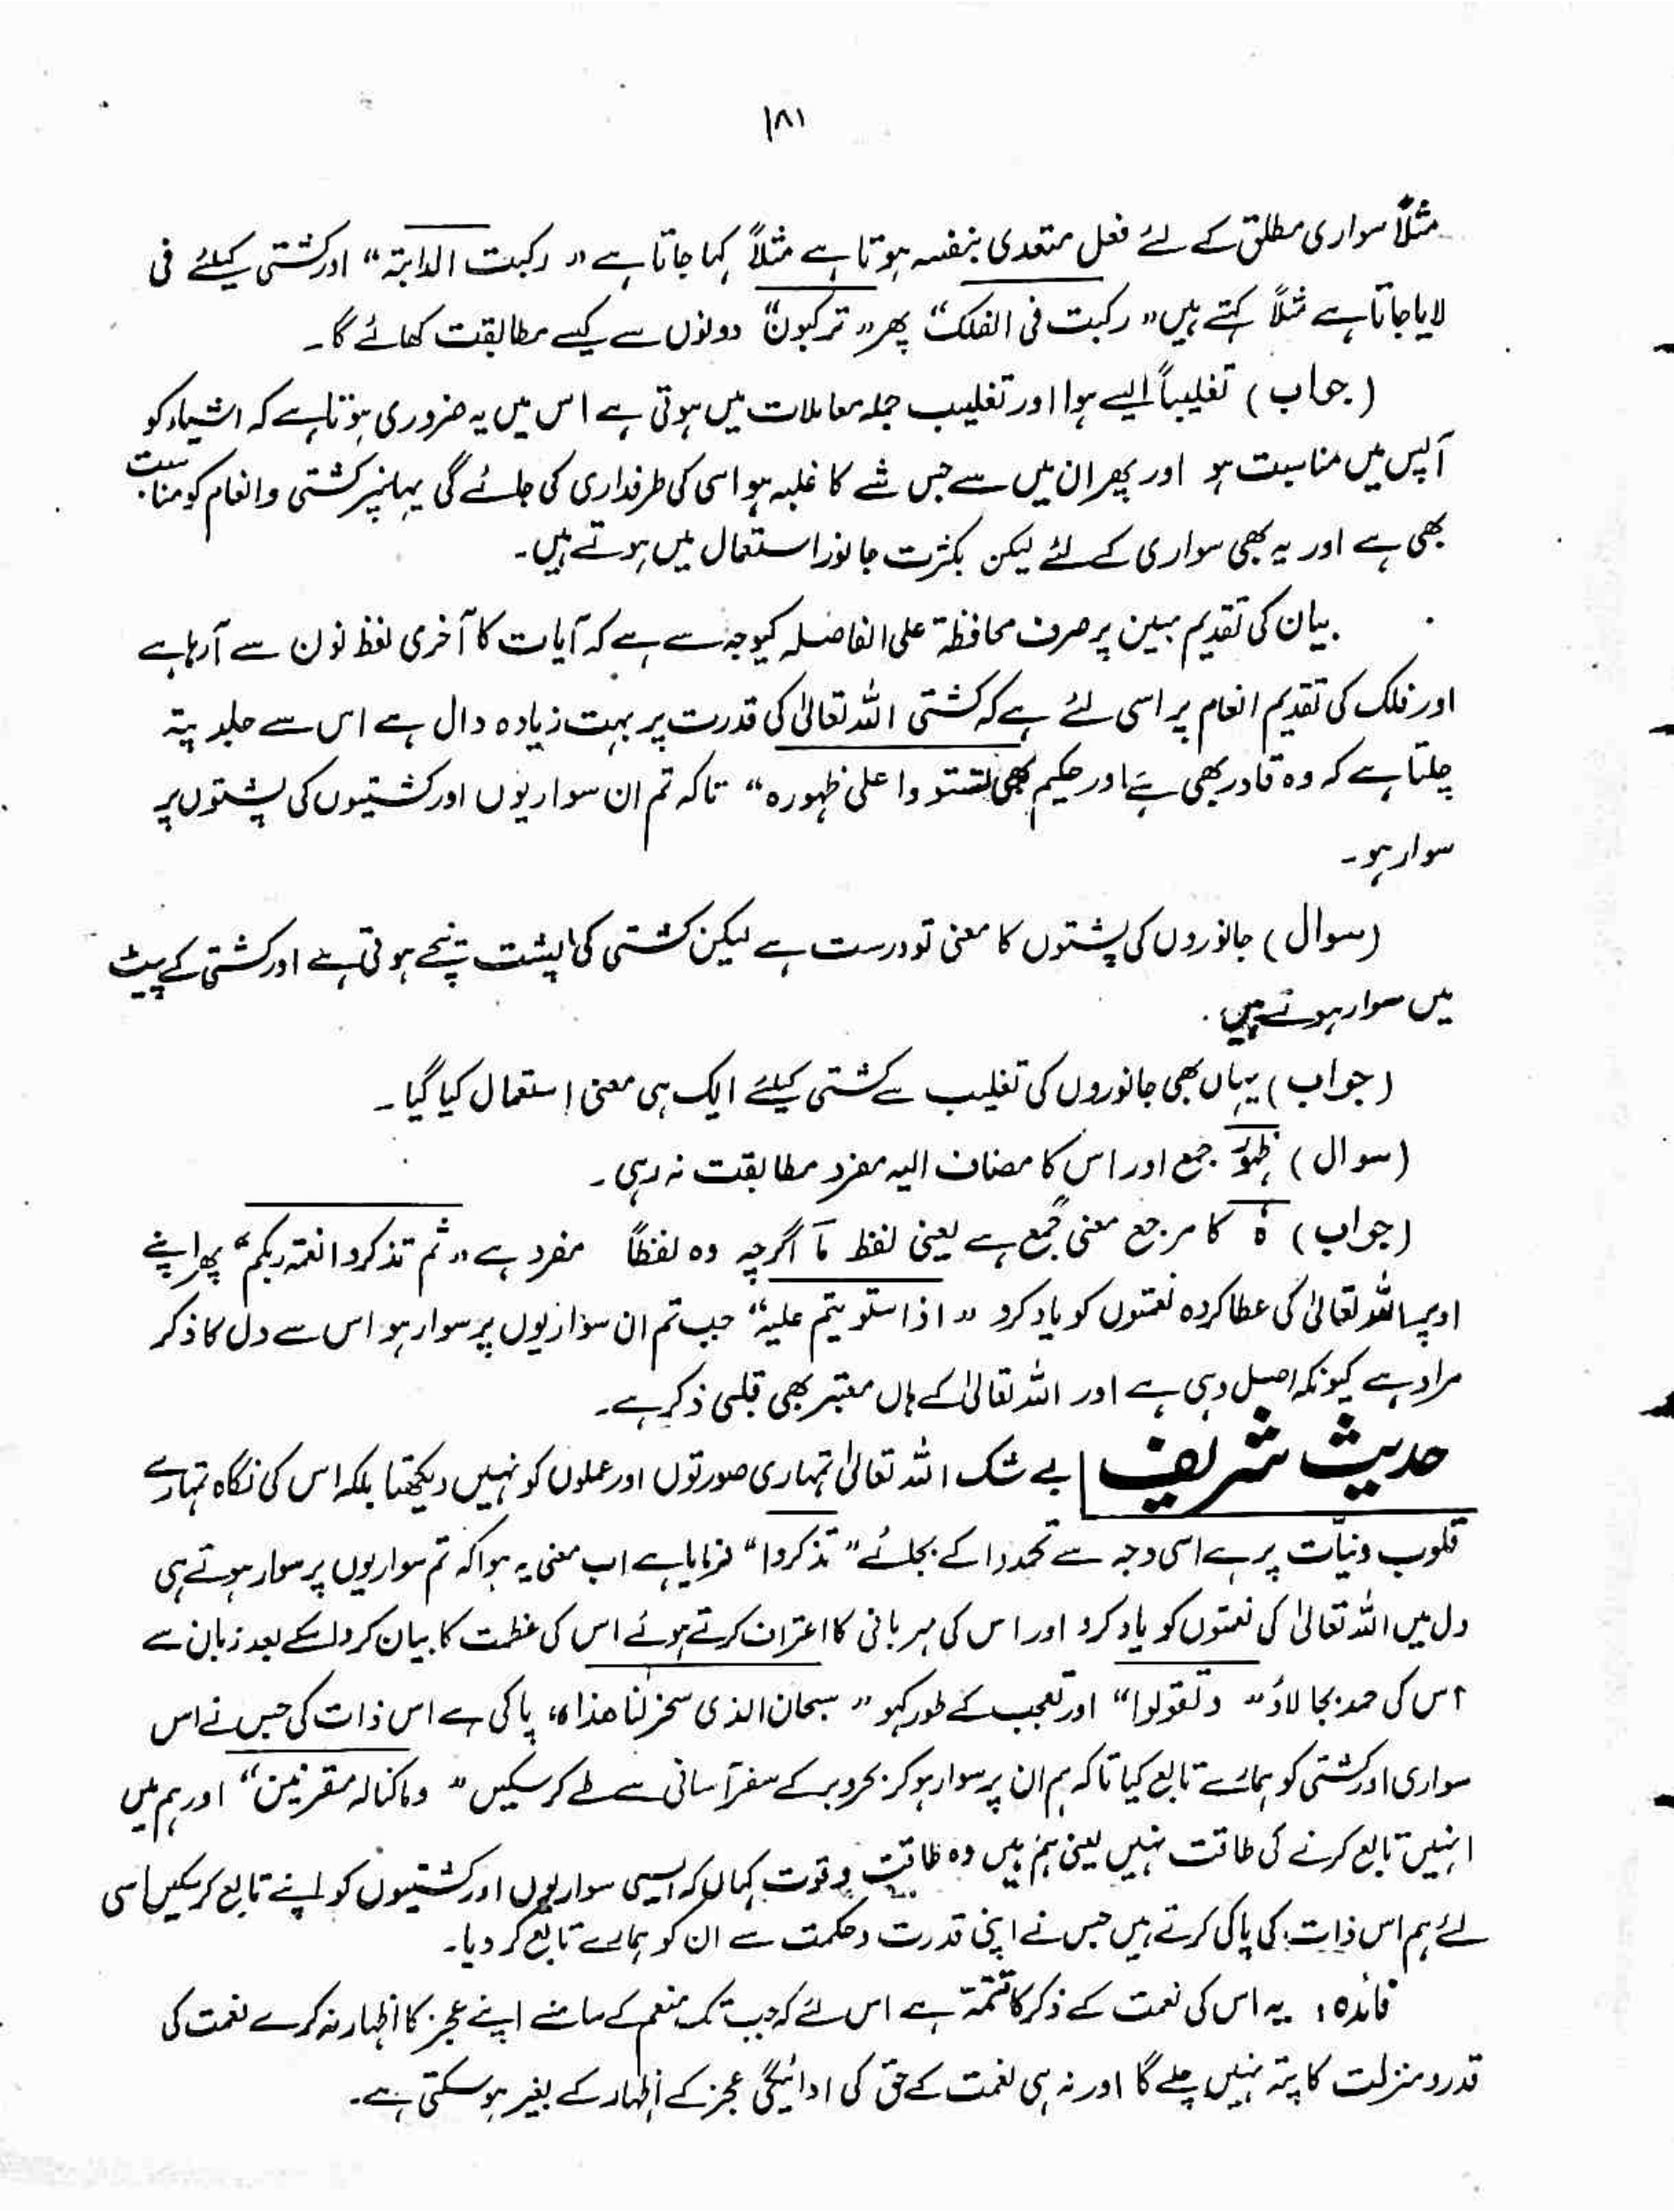 ۱۸۱
مثلاً سواری مطلق کے لئے فعل متعدی بنفسہ ہوتا ہے مثلاً کہا جاتا ہے " رکبت الدابتہ" اور کشتی کیلئے فی
لایا جاتا ہے مثلاً کہتے ہیں " رکبت فی الفلک" پھر " ترکبون" دونوں سے کیسے مطابقت کھائے گا۔
(جواب) تغلیباً ایسے ہوا اور تغلیب جملہ معاملات میں ہوتی ہے اس میں یہ ضروری ہوتا ہے کہ اشیاء کو
آپس میں مناسبت ہو اور پھر ان میں سے جس شے کا غلبہ ہو اسی کی طرفداری کی جائے گی یہاں پر کشتی و انعام کو مناسبت
بھی ہے اور یہ بھی سواری کے لئے لیکن بکثرت جانور استعمال میں ہوتے ہیں۔
بیان کی تقدیم مبین پر صرف محافظۃ علی الفاصلہ کیوجہ سے ہے کہ آیات کا آخری لفظ نون سے آرہا ہے
اور فلک کی تقدیم انعام پر اسی لئے ہے کہ کشتی اللہ تعالیٰ کی قدرت پر بہت زیادہ دال ہے اس سے جلد پتہ
چلتا ہے کہ وہ قادر بھی ہے اور حکیم بھی لتستووا علی ظہورہ" تاکہ تم ان سواریوں اور کشتیوں کی پشتوں پر
سوار ہو۔
(سوال) جانوروں کی پشتوں کا معنی تو درست ہے لیکن کشتی کی پشت نیچے ہوتی ہے اور کشتی کے پیٹ
میں سوار ہوتے ہیں۔
(جواب) یہاں بھی جانوروں کی تغلیب سے کشتی کیلئے ایک ہی معنی استعمال کیا گیا۔
(سوال) ظہور جمع اور اس کا مضاف الیہ مفرد مطابقت نہ رہی۔
(جواب) ہٗ کا مرجع معنی جمع ہے یعنی لفظ مَا اگرچہ وہ لفظاً مفرد ہے " ثم تذکروا نعمۃ ربکم" پھر اپنے
اوپر اللہ تعالیٰ کی عطا کردہ نعمتوں کو یاد کرو " اذا ستویتم علیہ" جب تم ان سواریوں پر سوار ہو اس سے دل کا ذکر
مراد ہے کیونکہ اصل وہی ہے اور اللہ تعالیٰ کے ہاں معتبر بھی قلبی ذکر ہے۔
حدیث شریف بے شک اللہ تعالیٰ تمہاری صورتوں اور عملوں کو نہیں دیکھتا بلکہ اس کی نگاہ تمہارے
قلوب و نیّات پر ہے اسی وجہ سے تحمدوا کے بجائے " تذکروا" فرمایا ہے اب معنی یہ ہوا کہ تم سواریوں پر سوار ہوتے ہی
دل میں اللہ تعالیٰ کی نعمتوں کو یاد کرو اور اس کی مہربانی کا اعتراف کرتے ہوئے اس کی عظمت کا بیان کرو اسکے بعد زبان سے
اس کی حمد بجا لاؤ " وتقولوا" اور تعجب کے طور کہو " سبحان الذی سخر لنا ھذا" پاکی ہے اس ذات کی جس نے اس
سواری اور کشتی کو ہمارے تابع کیا تاکہ ہم ان پر سوار ہو کر بحر و بر کے سفر آسانی سے طے کر سکیں " وما کنا لہ مقرنین" اور ہم میں
انہیں تابع کرنے کی طاقت نہیں یعنی ہم میں وہ طاقت و قوت کہاں کہ ایسی سواریوں اور کشتیوں کو اپنے تابع کر سکیں اسی
لئے ہم اس ذات کی پاکی کرتے ہیں جس نے اپنی قدرت و حکمت سے ان کو ہمارے تابع کر دیا۔
فائدہ: یہ اس کی نعمت کے ذکر کا تتمۃ ہے اس لئے کہ جب تک منعم کے سامنے اپنے عجز کا اظہار نہ کرے نعمت کی
قدر و منزلت کا پتہ نہیں چلے گا اور نہ ہی نعمت کے حق کی ادائیگی عجز کے اظہار کے بغیر ہو سکتی ہے۔